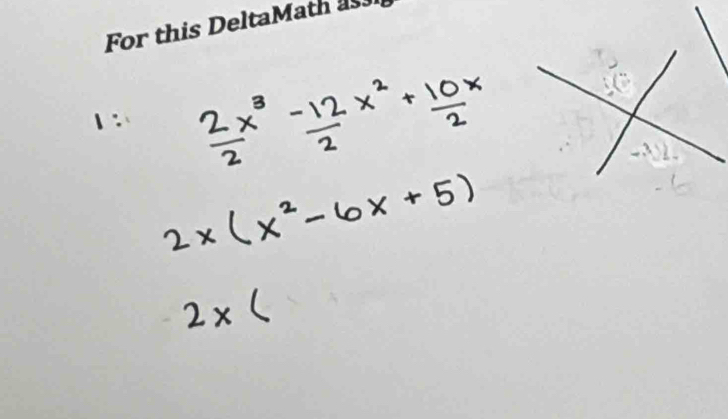 For this DeltaMath
1: 2/2 x³ -12/2 x² + 10x/2
2x(x² - 6x + 5)
2x(